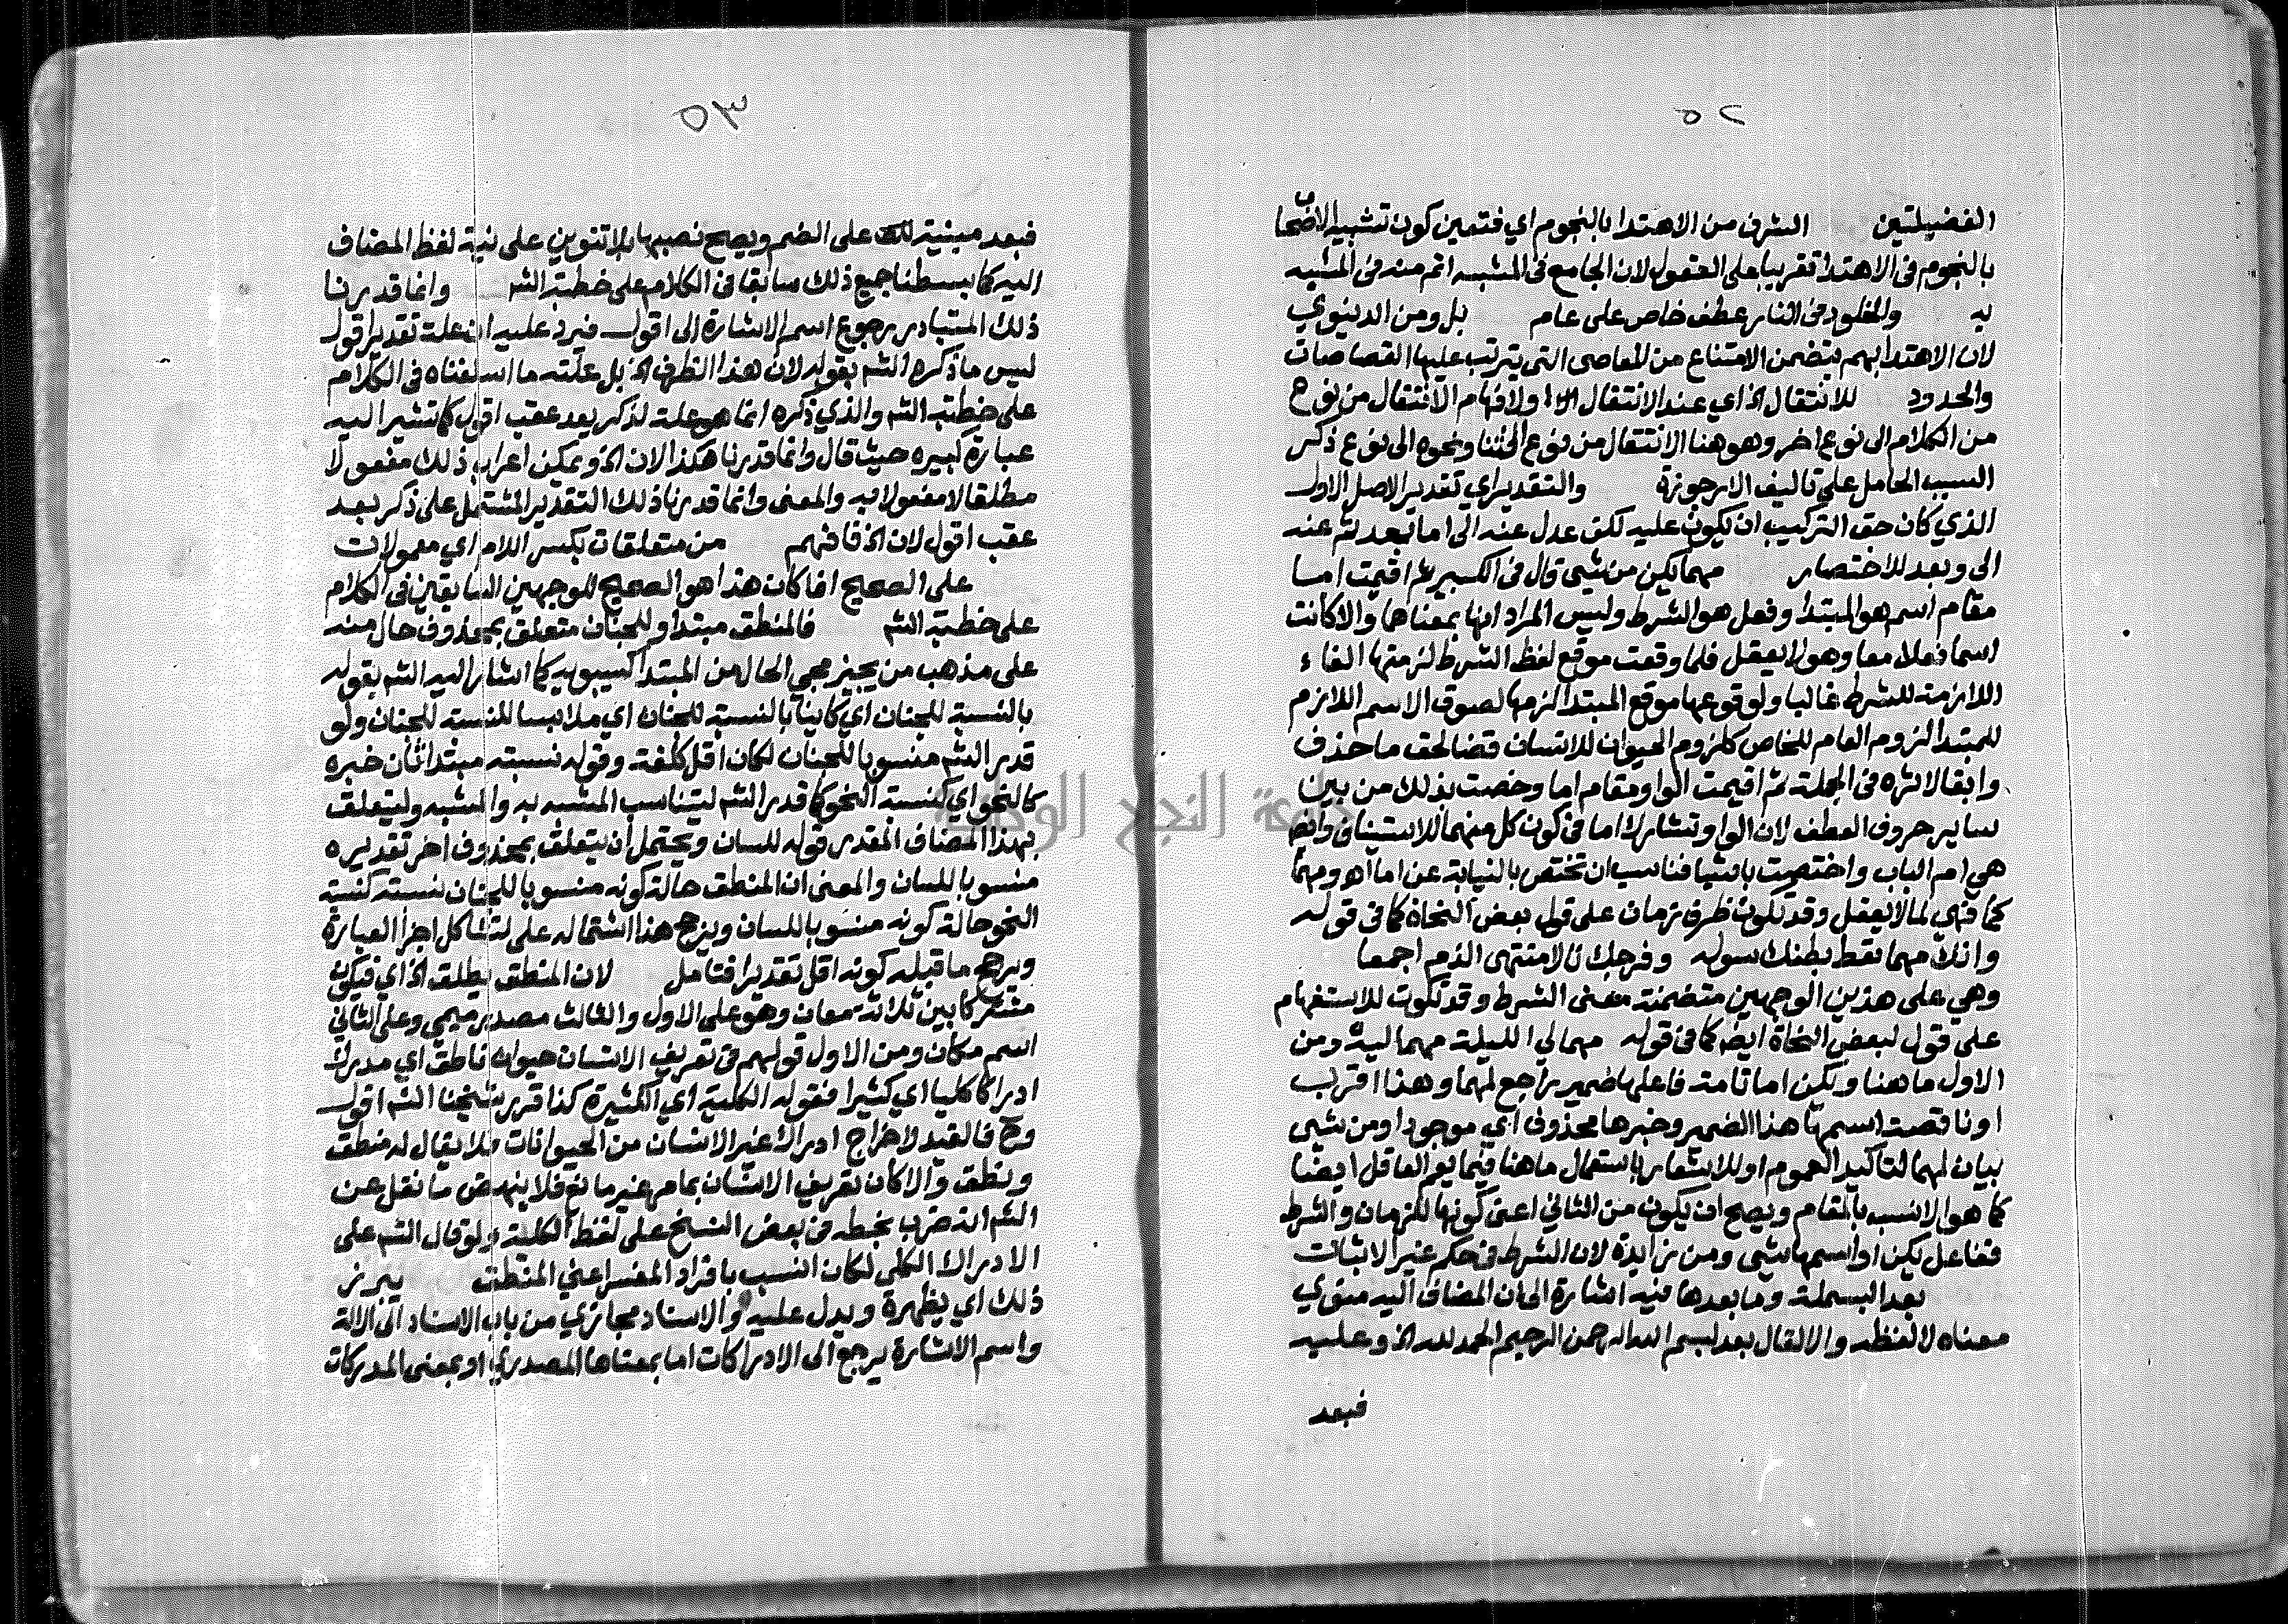 ٥٢
الفضيلتين الشرف من الاهتدا بالنجوم اي فتعين كون تشبيه الاضحاب
بالنجوم فى الاهتدا تقريبا على العقول لان الجامع فى المشبه اتم منه فى المشبه
به والخلود فى النار عطف خاص على عام بل ومن الدنيوي
لان الاهتدا بهم يتضمن الامتناع من المعاصى التى يترتب عليها القصاصات
والحدود للانتقال الخ اي عند الانتقال ولافهام الانتقال من نوع
من الكلام الى نوع اخر وهو هنا الانتقال من نوع الثنا ونحوه الى نوع ذكر
السبب الحامل على تاليف الارجوزة والتقدير اي تقدير الاصل الاول
الذي كان حق التركيب ان يكون عليه لكن عدل عنه الى اما بعد ثم عنه
الى وبعد للاختصار مهما يكن من شى قال فى الكبير ثم اقيمت اما
مقام اسم هو المبتدا وفعل هو الشرط وليس المراد انها بمعناهما والا كانت
اسما فعلا معا وهو لا يعقل فلما وقعت موقع لفظ الشرط لزمتها الفاء
اللازمة للشرط غالبا ولوقوعها موقع المبتدا لزمها لصوق الاسم اللازم
للمبتدا لزوم العام للخاص كلزوم الحيوان للانسان قضا لحق ما حذف
وابقا لاثره فى الجملة ثم اقيمت الواو مقام اما وخصت بذلك من بين
ساير حروف العطف لان الواو تشارك اما فى كون كل منهما للاستيناف وايضا
هي ام الباب واختصت باشيا فناسب ان تختص بالنيابة عن اما اهـ ومهما
كما فهي لما لا يعقل وقد تكون ظرف زمان على قول بعض النحاة كما فى قوله
وانك مهما تعط بطنك سوله وفرجك نالا منتهى الذم اجمعا
وهي على هذين الوجهين متضمنة معنى الشرط وقد تكون للاستفهام
على قول لبعض النحاة ايضا كما فى قوله مهما لي الليلة مهما ليه ومن
الاول ما هنا ويكن اما تامة فاعلها ضمير راجع لمهما وهذا اقرب
او ناقصة اسمها هذا الضمير وخبرها محذوف اي موجودا ومن شى
بيان لمهما لتاكيد العموم او للاشعار باستعمال ما هنا فيما يعم العاقل ايضا
كما هو الانسب بالمقام ويصح ان يكون من الثاني اعنى كونها للزمان والشرط
ففاعل يكن او اسمها شى ومن زايدة لان الشرط فى حكم غير الاثبات
بعد البسملة وما بعدها فيه اشارة الى ان المضاف اليه منوي
معناه لا لفظه والا لقال بعد بسم الله الرحمن الرحيم الحمد لله الخ وعليه
فبعد
٥٣
فبعد مبنية على الضم ويصح نصبها بلا تنوين على نية لفظ المضاف
اليه كما بسطنا جميع ذلك سابقا فى الكلام على خطبة الشم وانما قدرنا
ذلك المتبادر رجوع اسم الاشارة الى اقول فيرد عليه ان علة تقدير اقول
ليس ما ذكره الشم بقوله لان هذا الظرف الخ بل علته ما اسلفناه فى الكلام
على خطبة الشم والذي ذكره انما هو علة لذكر بعد عقب اقول كما تشير اليه
عبارة كبيره حيث قال وانما قدرنا هكذا لان الخ ويمكن اعراب ذلك مفعولا
مطلقا لا مفعولا به والمعنى وانما قدرنا ذلك التقدير المشتمل على ذكر بعد
عقب اقول لان الخ فافهم من متعلقات بكسر اللام اي معمولات
على الصحيح انما كان هذا هو الصحيح للوجهين السابقين فى الكلام
على خطبة الشم فالمنطق مبتدا وللجنان متعلق بمحذوف حال منه
على مذهب من يجيز مجي الحال من المبتدا كسيبويه كما اشار اليه الشم بقوله
بالنسبة للجنان اي كاينا بالنسبة للجنان اي ملابسا للنسبة للجنان ولو
قدر الشم منسوبا للجنان لكان اقل كلفة وقوله نسبته مبتدا ثان خبره
كالنحو اي كنسبة النحو كما قدر الشم ليتناسب المشبه به والمشبه وليتعلق
بهذا المضاف المقدر قوله للسان ويحتمل ان يتعلق بمحذوف اخر تقديره
منسوبا للسان والمعنى ان المنطق حالة كونه منسوبا للجنان نسبته كنسبة
النحو حالة كونه منسوبا للسان ويرجح هذا اشتماله على تشاكل اجزا العبارة
ويرجح ما قبله كونه اقل تقديرا فتامل لان المنطق يطلق الخ اي فيكون
مشتركا بين ثلاثة معان وهو على الاول والثالث مصدر ميمى وعلى الثاني
اسم مكان ومن الاول قولهم فى تعريف الانسان حيوان ناطق اي مدرك
ادراكا كليا اي كثيرا فقوله الكلية اي الكثيرة كذا قرر شيخنا الشم اقول
وح فالقيد لاخراج ادراك غير الانسان من الحيوانات فلا يقال له منطق
ونطق والا كان تعريف الانسان بما مر غير مانع فلا ينهض ما نقل عن
الشم انه ضرب بخطه فى بعض النسخ على لفظ الكلية ولو قال الشم على
الادراك الكلى لكان انسب بافراد المفسر اعني المنطق يبرز
ذلك اي يظهره ويدل عليه والاسناد مجازي من باب الاسناد الى الالة
واسم الاشارة يرجع الى الادراكات اما بمعناها المصدري او بمعنى المدركات
جامعة النجاح الوطنية